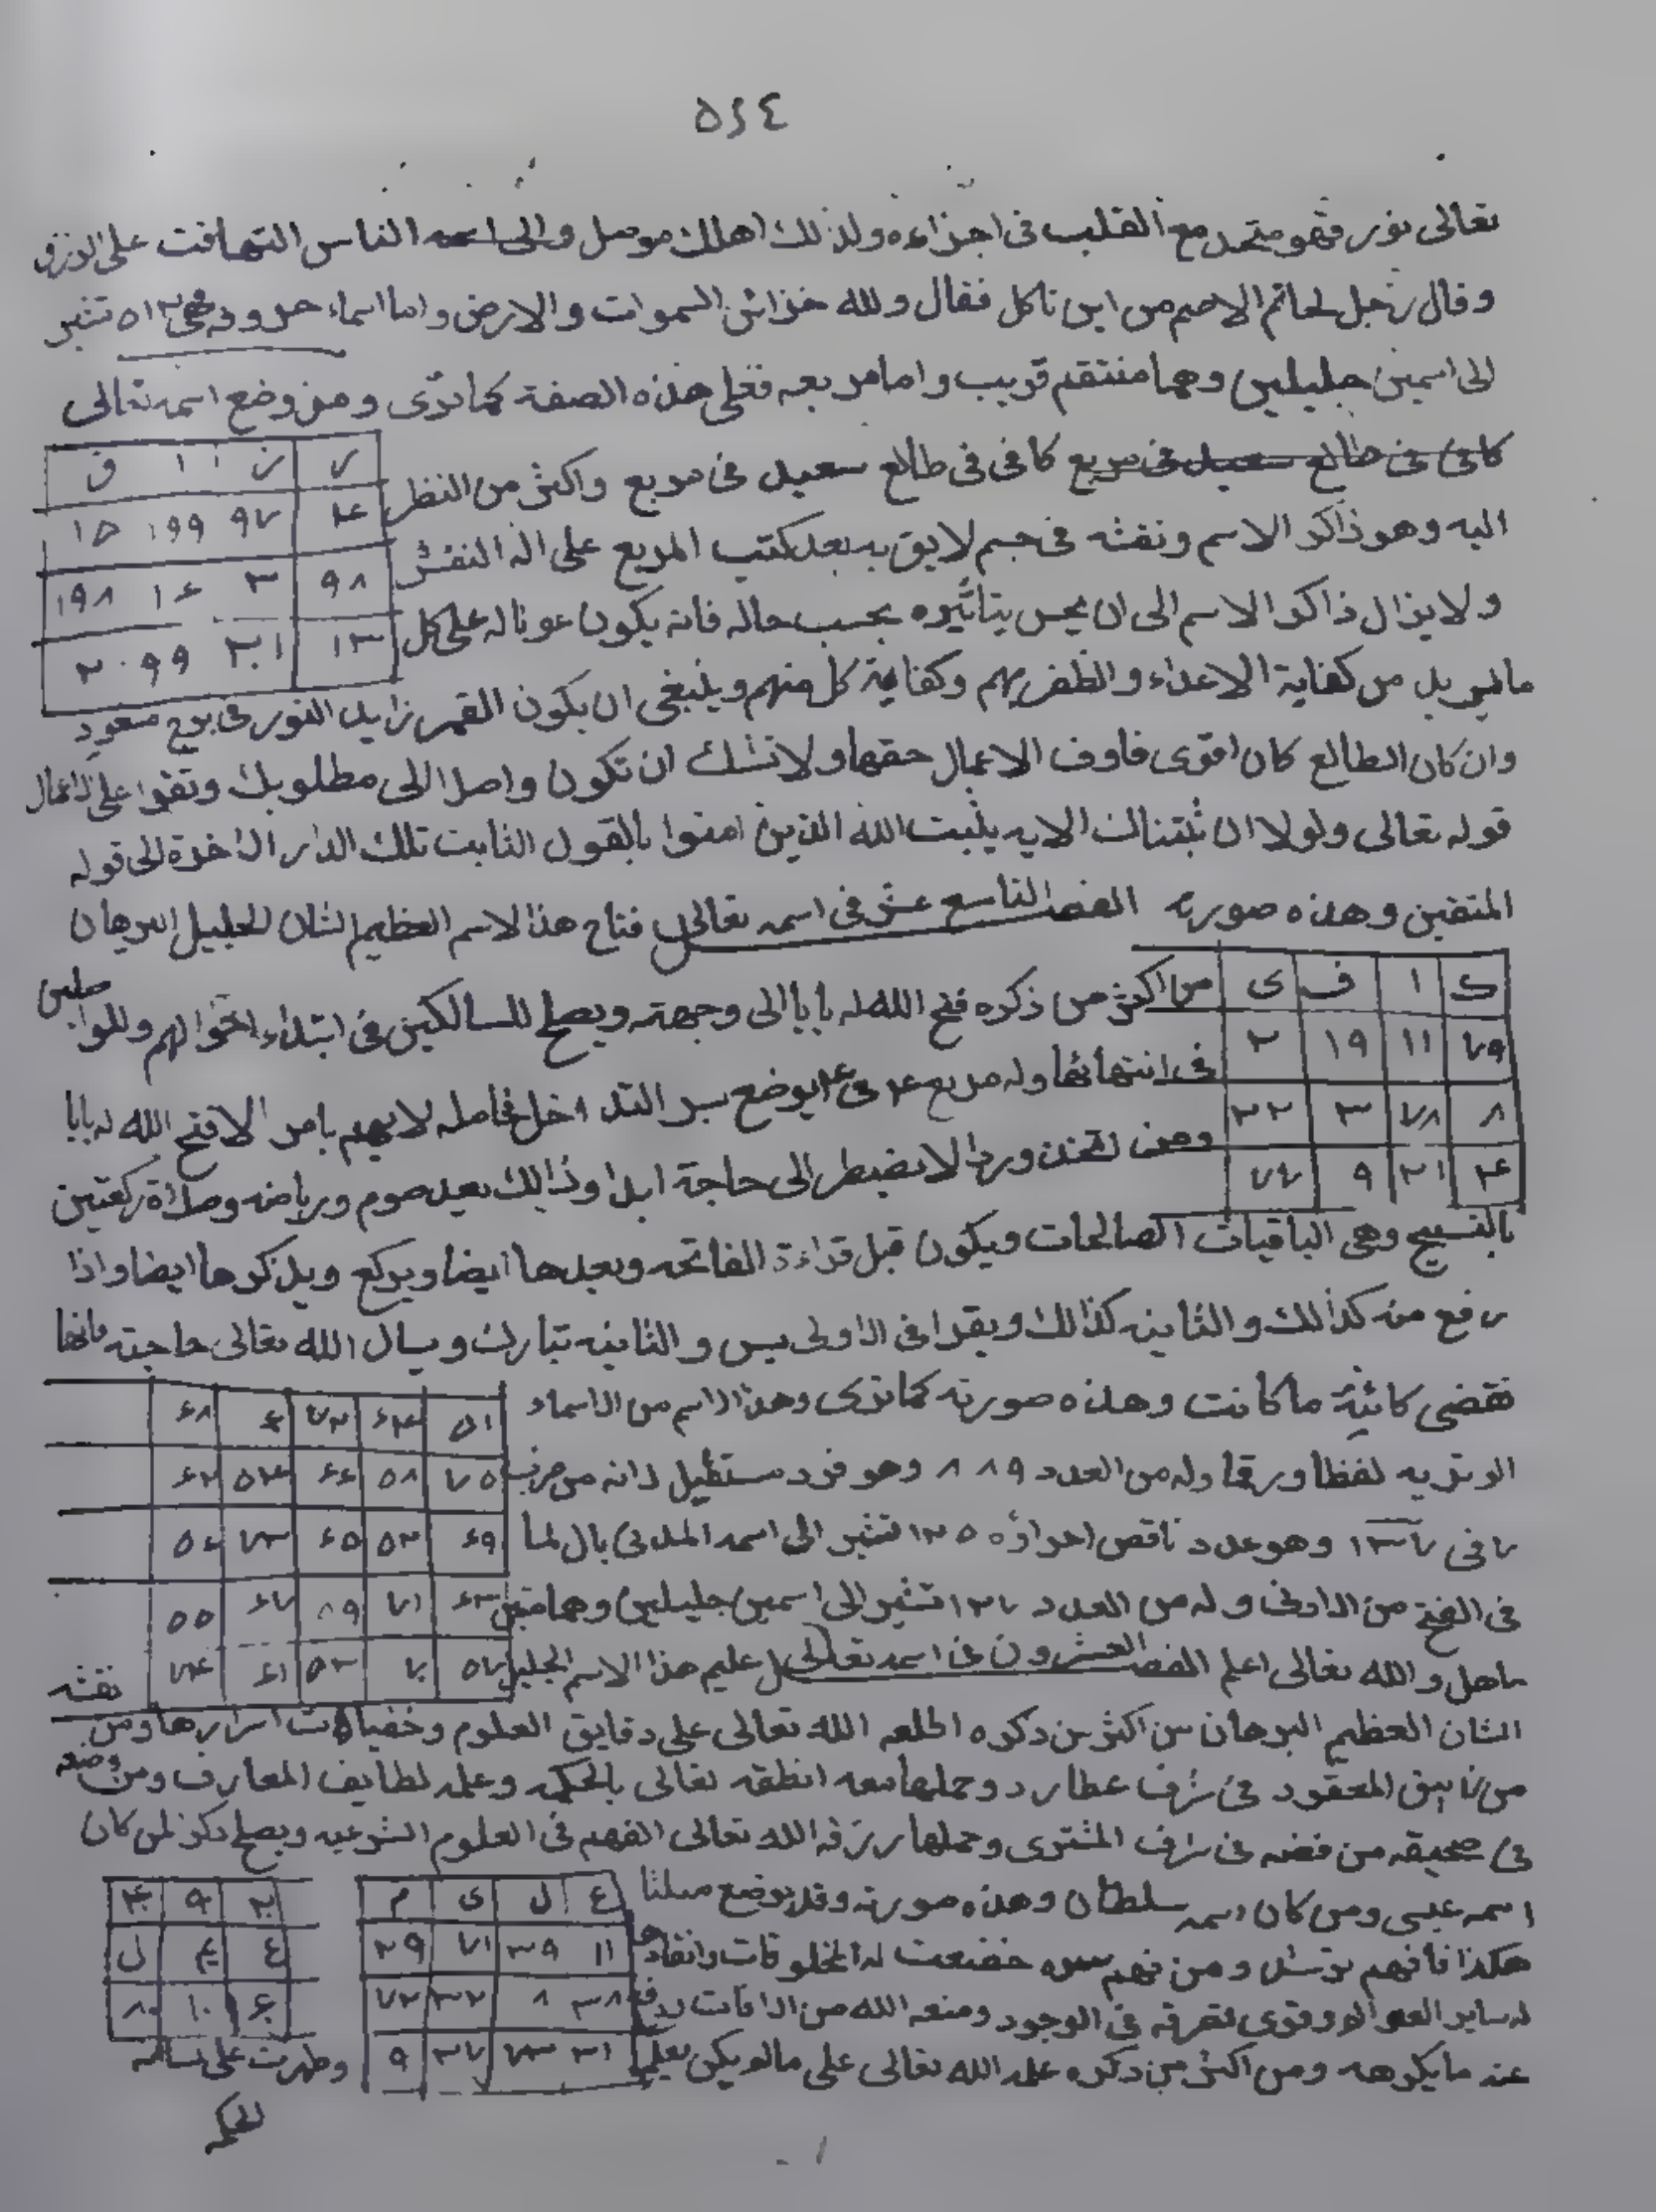 ٥٢٤
تعالى نور فهو متحد مع القلب فى اجزاءه ولذلك اهلك موصل والى اسمه الناس التهافت على الرزق
وقال رجل لحاتم الاصم من اين تاكل فقال ولله خزائن السموات والارض واما اسماء حروفه فهى ٣١٥ تشير
الى اسمين جليلين وهما منتقم قريب واما مربعه فعلى هذه الصفة كما ترى ومن وضع اسمه تعالى
كافى فى طالع سعيد فى مربع كافى فى طالع سعيد فى مربع واكثر من النظر
ر ز ا ق
٤ ٩٧ ١٩٩ ١٥
٩٨ ٣ ١٤ ١٩٨
١٣ ٢٠١ ٩٩ ٢
اليه وهو ذاكر الاسم ونقشه فى جسم لايق به بعد كتب المربع على اله النقش
ولا يزال ذاكر الاسم الى ان يحس بتاثيره بحسب حاله فانه يكون عونا له على كل
ما يريد من كفاية الاعداء والظفر بهم وكفاية كل منهم وينبغى ان يكون القمر زايد النور فى برج مسعود
وان كان الطالع كان اقوى فاوف الاعمال حقها ولا تشك ان تكون واصلا الى مطلوبك وتقرا على الاعمال
قوله تعالى ولولا ان ثبتناك الايه يثبت الله الذين امنوا بالقول الثابت تلك الدار الاخرة الى قوله
المتقين وهذه صورته الفصل التاسع عشر فى اسمه تعالى فتاح هذا الاسم العظيم الشان الجليل البرهان
ك ا ف ى
٧٩ ١١ ١٩ ٢
٨ ٧٨ ٣ ٢٢
٤ ٢١ ٩ ٧٧
من اكثر من ذكره فتح الله له بابا الى وجهته ويصلح للسالكين فى ابتداء احوالهم وللواصلين
فى انتهائها وله مربع ٤ فى ٤ يوضع بسر التداخل فحامله لا يهم بامر الا فتح الله له بابا
ومن اتخذه وردا لا يضطر الى حاجة ابدا وذالك بعد صوم ورياضه وصلاة ركعتين
بالتسبيح وهى الباقيات الصالحات ويكون قبل قراءة الفاتحه وبعدها ايضا ويركع ويذكرها ايضا واذا
رفع منه كذالك والثانيه كذالك ويقرا فى الاولى يس والثانيه تبارك ويسال الله تعالى حاجته فانها
تقضى كائنة ما كانت وهذه صورته كما ترى وهذا الاسم من الاسماء
الوتريه لفظا ورقما وله من العدد ٨٨٩ وهو فرد مستطيل لانه من ضرب
٧ فى ١٢٧ وهو عدد ناقص اجزاؤه ١٣٥ تشير الى اسمه
فى الفتح من الاولى وله من العدد ١٢٧ تشير الى اسمين جليلين وهما
والله تعالى اعلم الفصل العشرون فى اسمه تعالى عليم هذا الاسم الجليل
نقشه
الشان العظيم البرهان من اكثر من ذكره اطلعه الله تعالى على دقايق العلوم وخفيات اسرارها ومن
من المعقود فى شرف عطارد وحملها معه انطقه تعالى بالحكمه وعلمه لطايف المعارف ومن وضعه
فى صحيفه من فضه فى شرف المشترى وحملها رزقه الله تعالى الفهم فى العلوم الشرعيه ويصلح ذكر لمن كان
اسمه عيسى ومن كان اسمه سلطان وهذه صورته وقد يوضع مثلثا
ع ل ى م
١١ ٣٩ ٧١ ٢٩
٣٨ ٨ ٣٢ ٧٢
٣١ ٧٣ ٣٧ ٩
هكذا فافهم ترشد ومن فهم سره خضعت له المخلوقات وانقاد
له ساير العوالم وقوى تصرفه فى الوجود ومنعه الله من الافات
عند ما يكرهه ومن اكثر من ذكره علمه الله تعالى على ما لم يكن يعلم وظهرت على لسانه
الحكمه